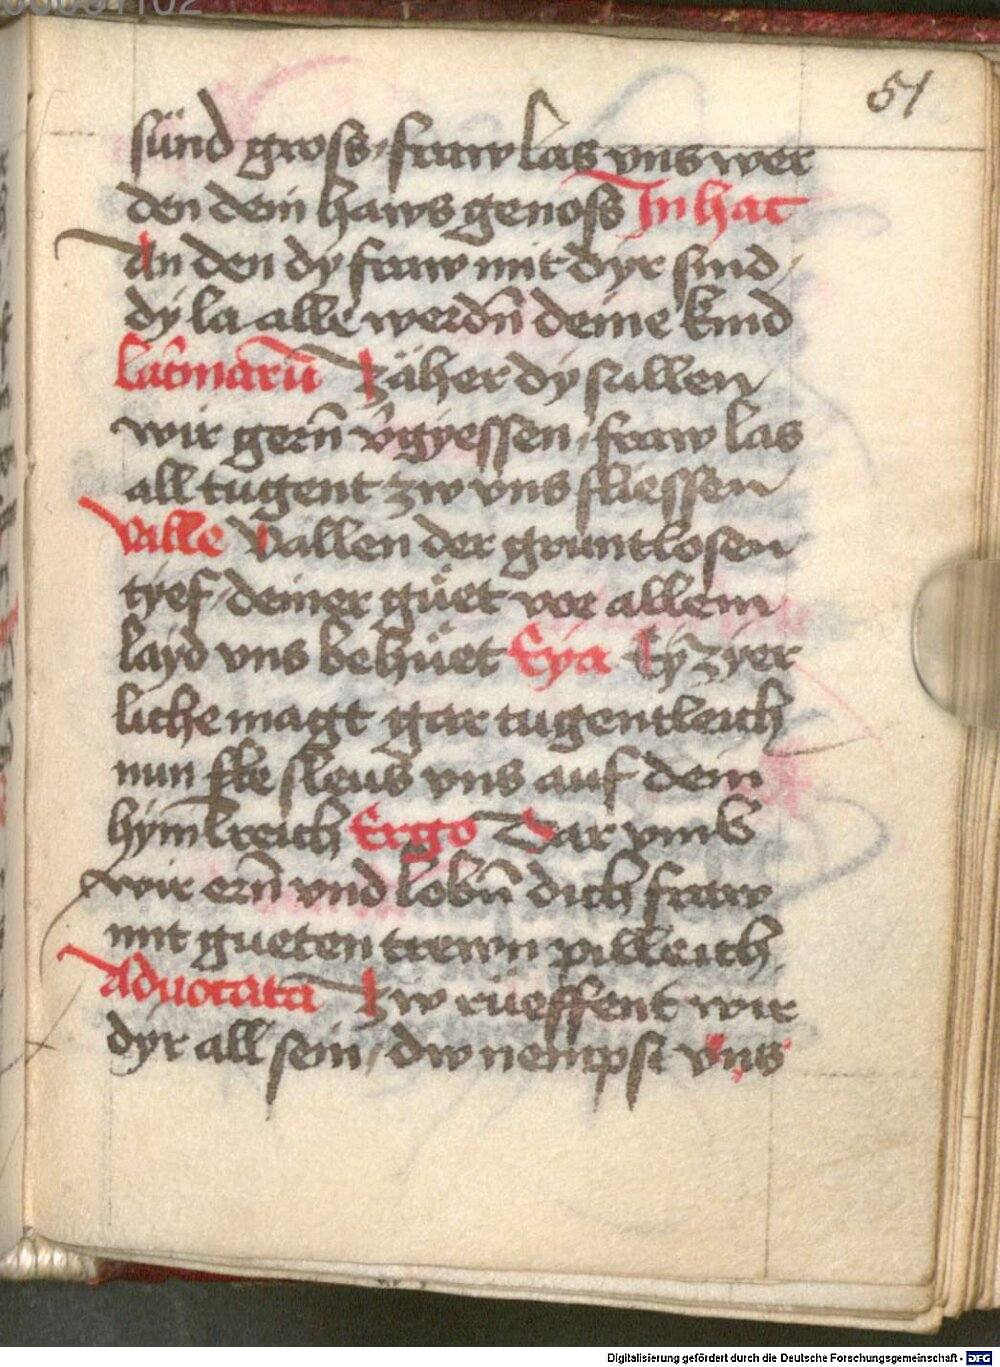 51
sünd gross / fraw las vns wer
den dein haws genoss In hac
An den dy fraw mit dyr sind /
dy la alle werdn̄ deine kind
lac̄marū Zäher dy sullen
wir gern̄ v̄gyessen / fraw las
all tugent zw vns fliessen
Valle Vallen der gruntlosen
tyef / deiner güet vor allem
layd vns behüet Eya Ey zyer
liche magt gar tugentleich
nun sleus vns auf dein
hym̄lreich Ergo Dar vmb
wir ern̄ vnd lobn̄ dich fraw
mit gueten trewn pilleich
Aduocata Zw rüeffent wir
dyr all sein / dw nempst vns
Digitalisierung gefördert durch die Deutsche Forschungsgemeinschaft - DFG